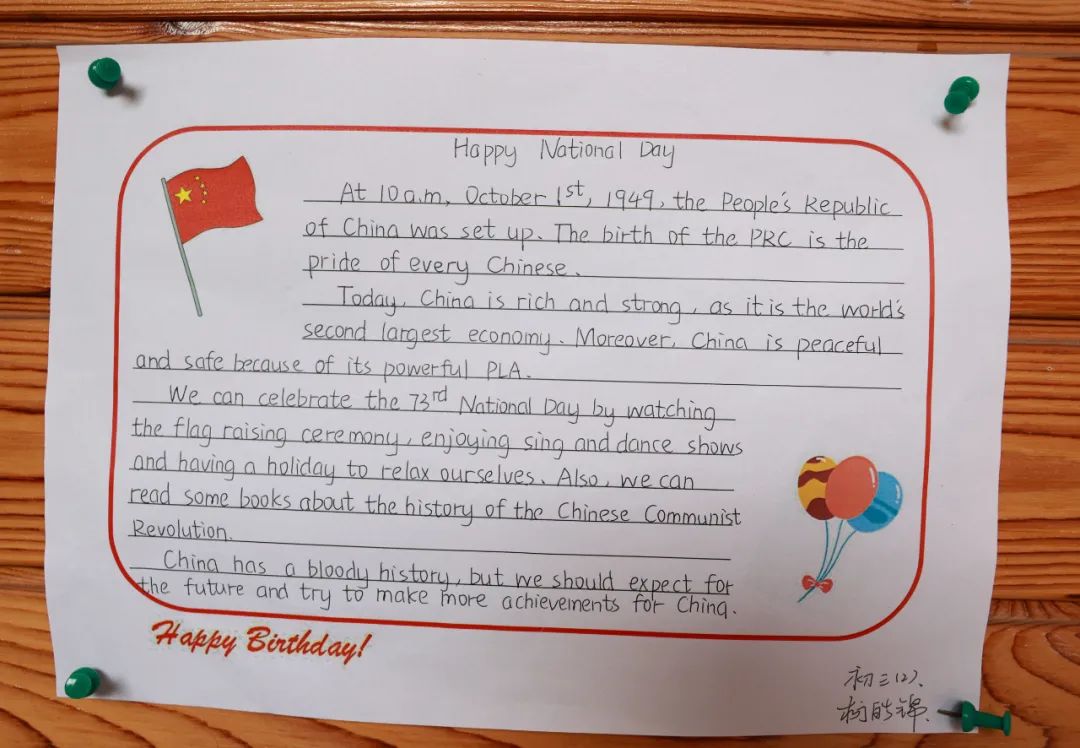 Happy National Day
At 10 a.m, October 1st, 1949, the People's Republic
of China was set up. The birth of the PRC is the
pride of every Chinese.
Today, China is rich and strong, as it is the world's
second largest economy. Moreover, China is peaceful
and safe because of its powerful PLA.
We can celebrate the 73rd National Day by watching
the flag raising ceremony, enjoying sing and dance shows
and having a holiday to relax ourselves. Also, we can
read some books about the history of the Chinese Communist
Revolution.
China has a bloody history, but we should expect for
the future and try to make more achievements for China.
Happy Birthday!
初三(2).
杨皓锦.